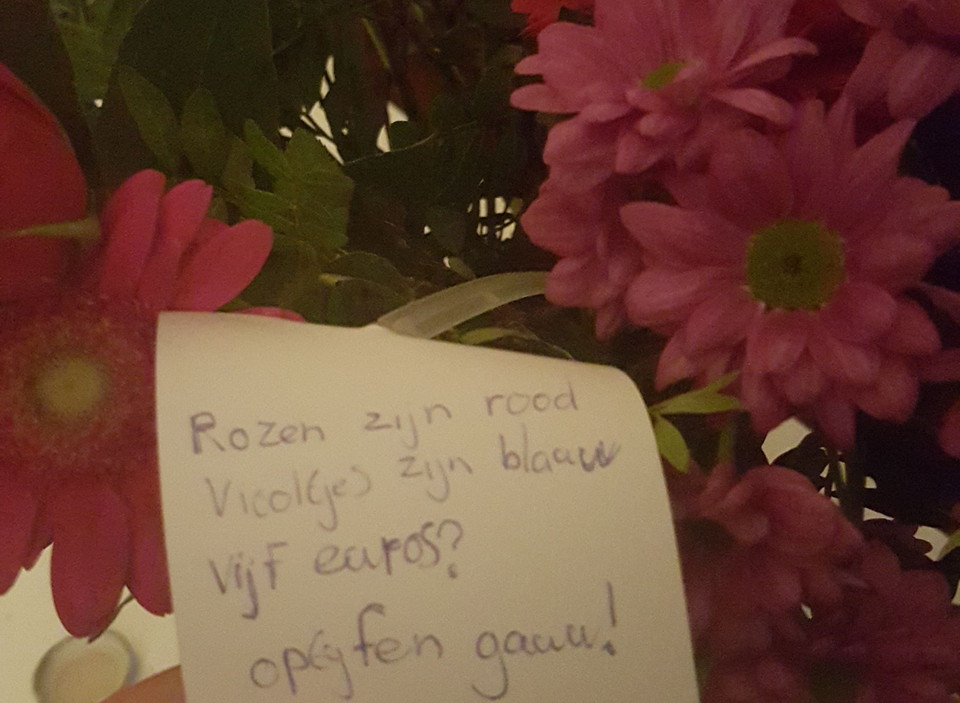 Rozen zijn rood
Vicol(je) zijn blaauw
Vijf euros?
op(g)fen gauw!